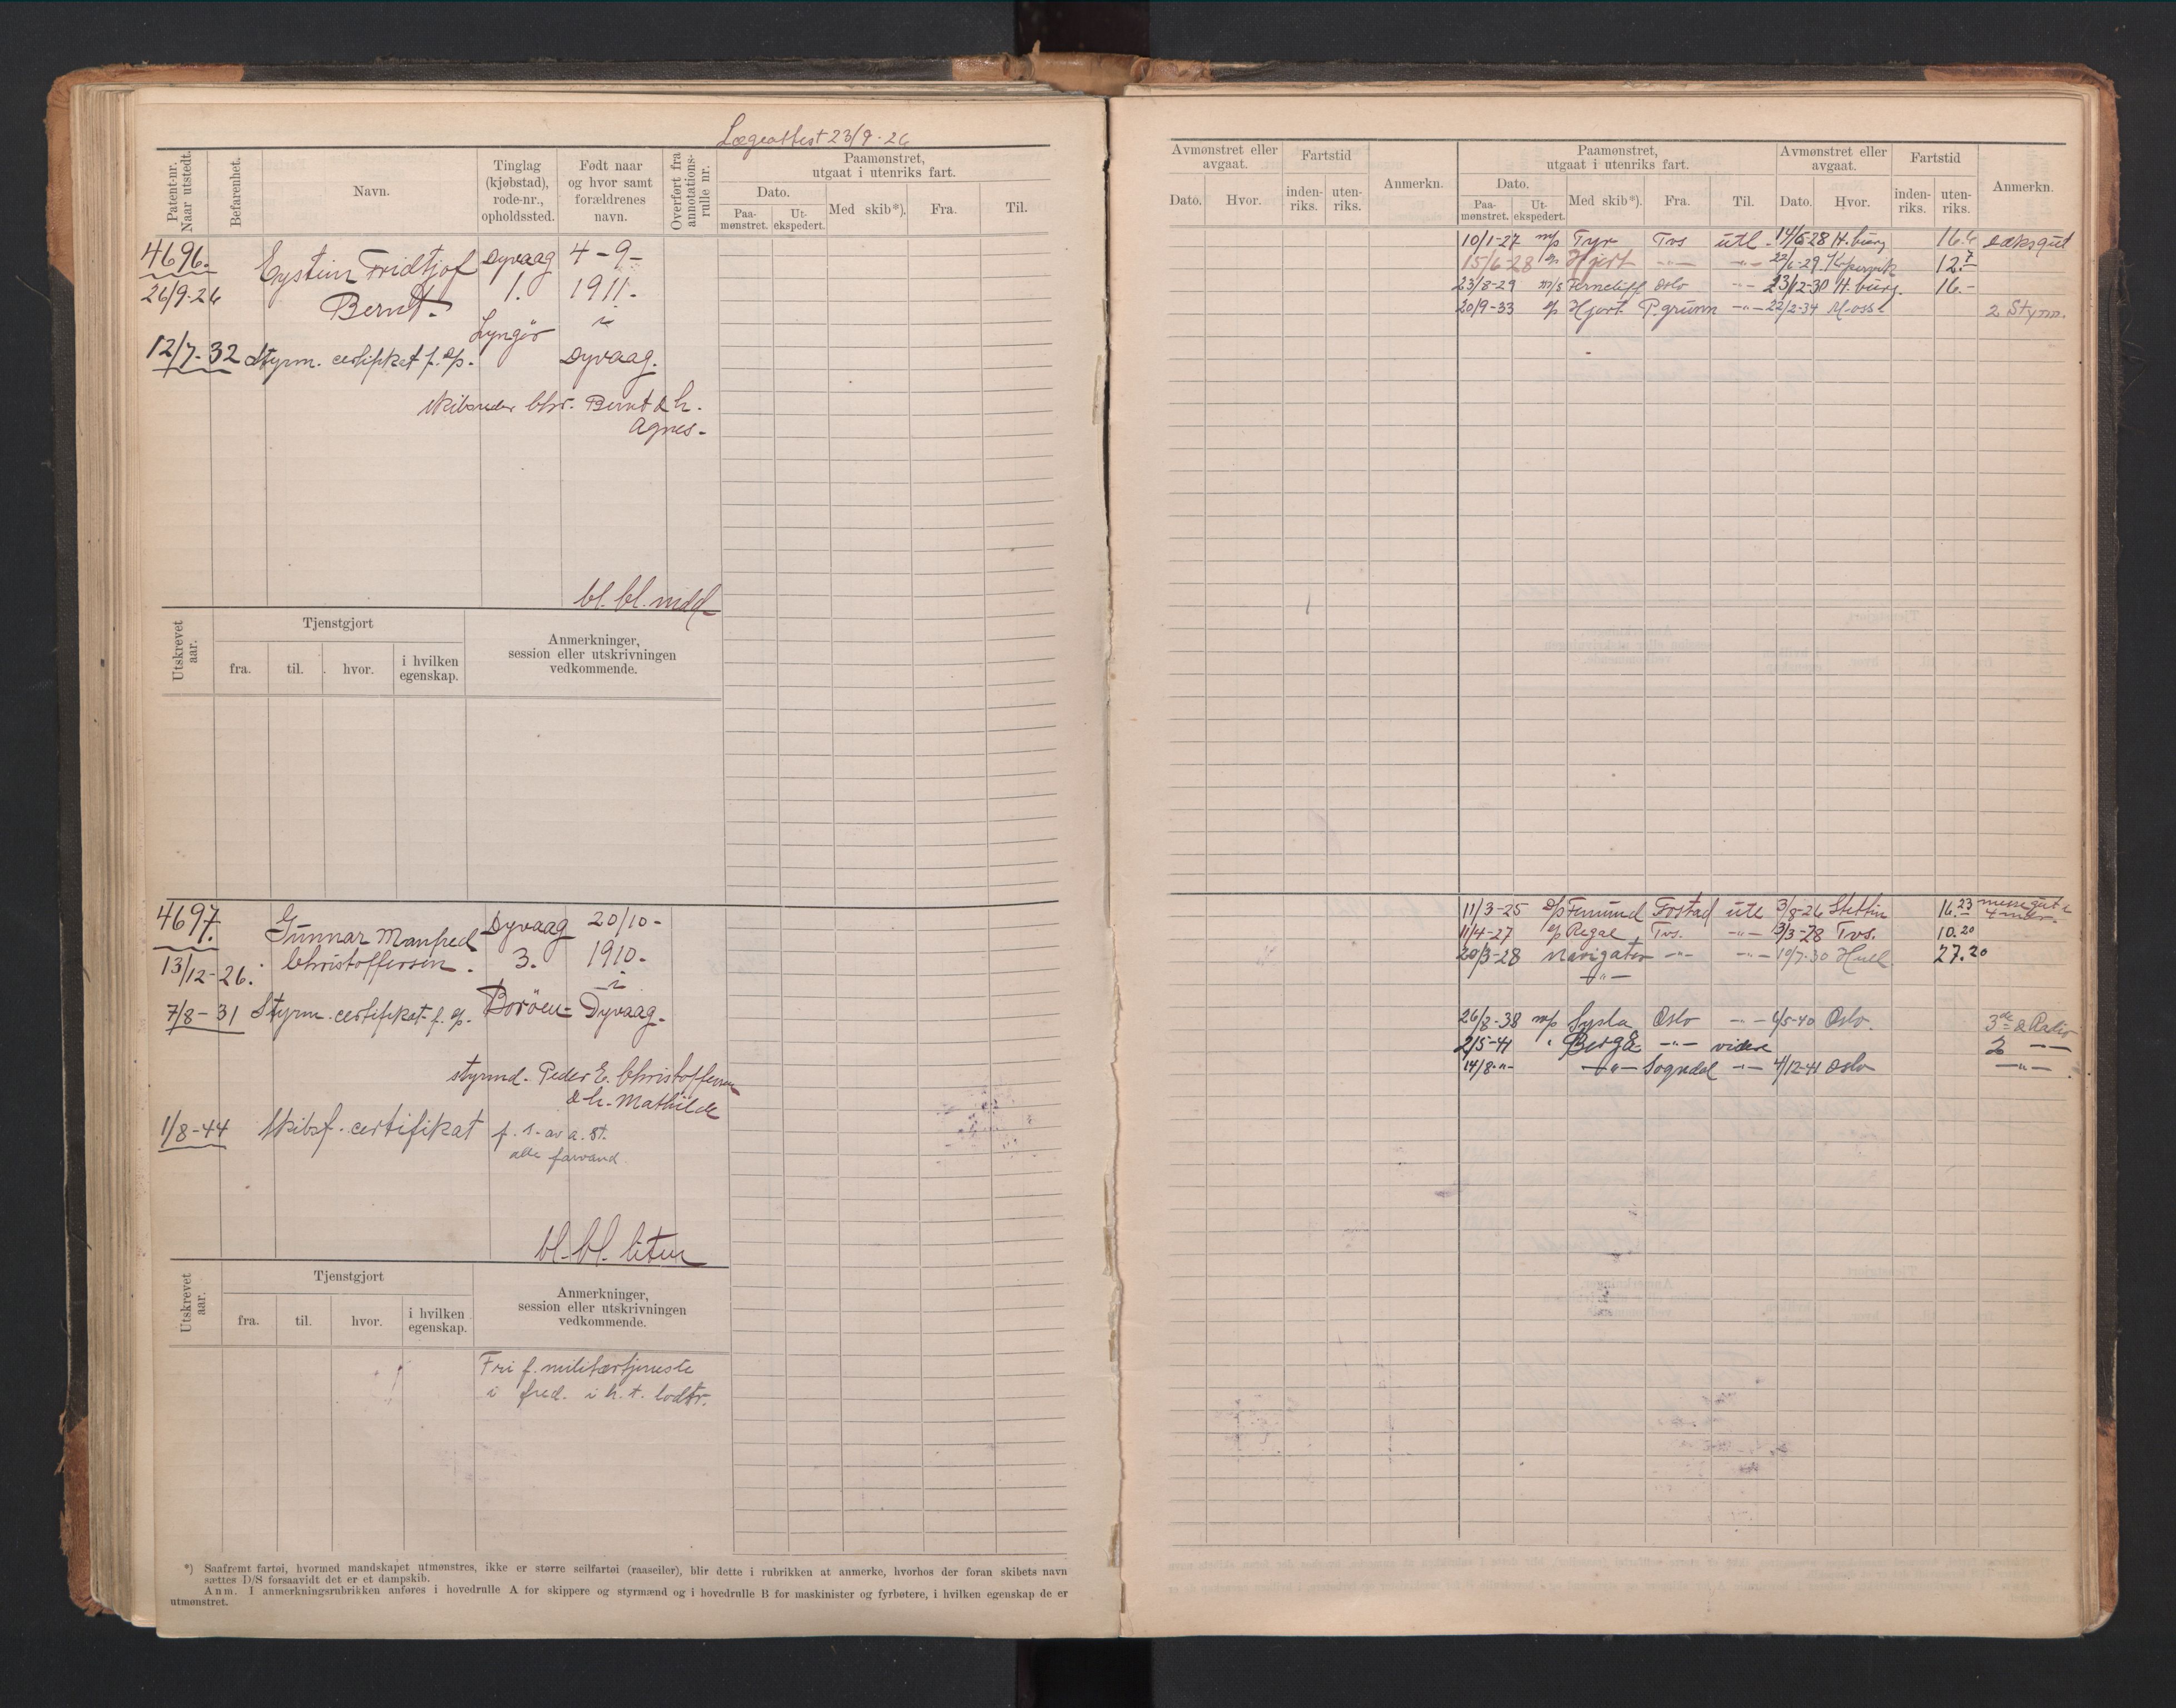 Lægeattest 23/9-26
Patent-nr. Naar utstedt.
Befarenhet.
Navn.
Tinglag (kjøbstad), rode-nr., opholdssted.
Født naar og hvor samt forældrenes navn.
Overført fra annotations-rulle nr.
Paamønstret, utgaat i utenriks fart.
Dato.
Paa-mønstret.
Ut-ekspedert.
Med skib*).
Fra.
Til.
4696.
26/9-26
Eystein Fridtjof
Bernt.
Dyvaag
1.
Lyngör
4-9-
1911.
i
Dyvaag.
12/7-32 Styrm. certifikat f. D/p.
skibsreder Chr. Bernt & h.
Agnes-
bl. bl. midd
Utskrevet aar.
Tjenstgjort
fra.
til.
hvor.
i hvilken egenskap.
Anmerkninger,
session eller utskrivningen
vedkommende.
4697.
13/12-26.
Gunnar Manfred
Christoffersen.
Dyvaag
3.
Boröen-
20/10-
1910-
i
Dyvaag-
7/8-31 Styrm. certifikat f. D/p.
styrmd. Peder E. Christoffersen
& h. Mathilde
1/8-44 Skibsf. certifikat f. s. av a. st.
alle farvand
bl. bl. liten
Utskrevet aar.
Tjenstgjort
fra.
til.
hvor.
i hvilken egenskap.
Anmerkninger,
session eller utskrivningen
vedkommende.
Fri f. militærtjeneste
i fred. i h. t. lodtr.
*) Saafremt fartøi, hvormed mandskapet utmønstres, ikke er større seilfartøi (raaseiler), blir dette i rubrikken at anmerke, hvorhos der foran skibets navn
sættes D/S forsaavidt det er et dampskib.
Anm. I anmerkningsrubrikken anføres i hovedrulle A for skippere og styrmænd og i hovedrulle B for maskinister og fyrbøtere, i hvilken egenskap de er
utmønstret.
Avmønstret eller avgaat.
Dato.
Hvor.
Fartstid
inden-riks.
uten-riks.
Anmerkn.
Paamønstret, utgaat i utenriks fart.
Dato.
Paa-mønstret.
Ut-ekspedert.
Med skib*).
Fra.
Til.
Avmønstret eller avgaat.
Dato.
Hvor.
Fartstid
inden-riks.
uten-riks.
Anmerkn.
10/1-27 m/p Tyr Tvs utl - 14/5-28 H.burg 16.4 dæksgut
15/6-28 D/p Hjort -"- -"- 22/6-29 12.7
23/8-29 m/s Ferncliff Oslo -"- 23/12-30 H.burg. 16.-
20/9-33 D/p Hjort P.grunn -"- 22/2-34 Moss 2 Styrm.
11/3-25 D/p Femund Fostad utl 3/8-26 Stettin 16.23
11/4-27 D/p Regal Tvs. -"- 3/3-28 Tvs. 10.20
20/3-28 Navigator -"- -"- 10/7-30 Hull. 27.20
-"-
26/8-38 m/p Sysla Oslo -"- 6/5-40 Oslo. 3de
2/5-41 " Berg -"- videre 2 -"-
14/8-"- -"- Sogndal -"- 4/12-41 Oslo -"-